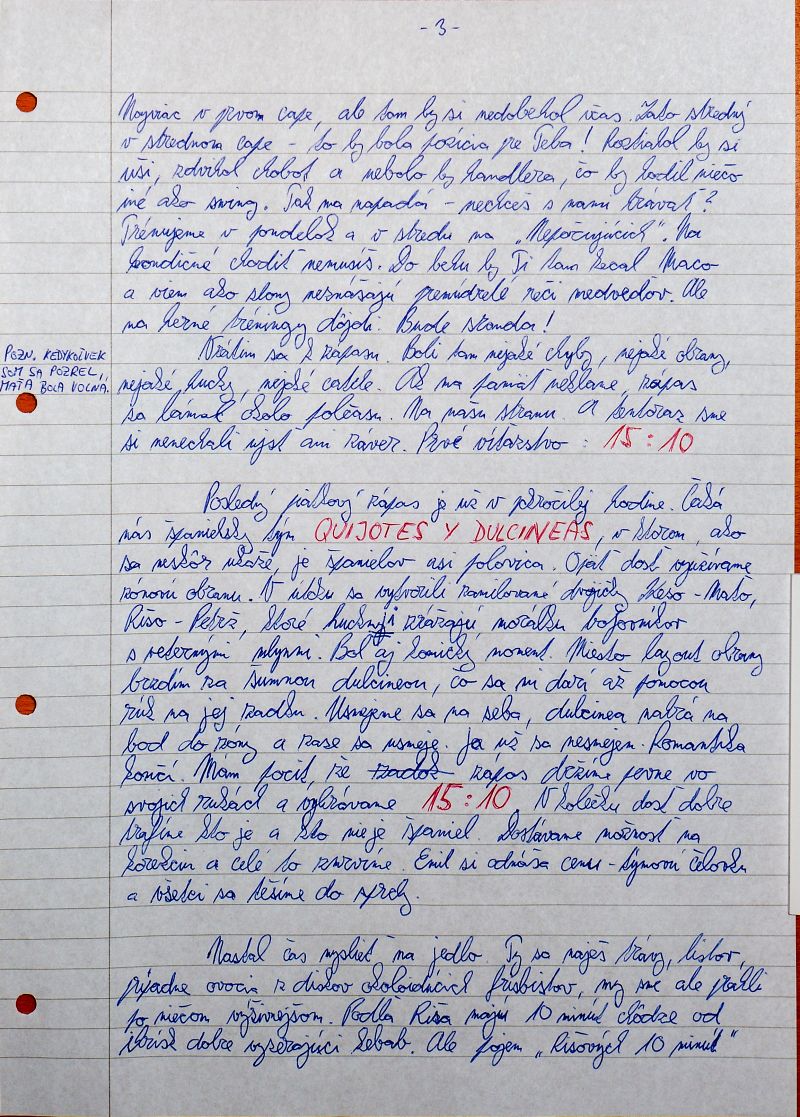 - 3 -
Najviac v prvom cape, ale tam by si nedobehol včas. Zato stredný
v strednom cape - to by bola pozícia pre Teba! Roztiahol by si
uši, zdvihol chobot a nebolo by handlera, čo by hodil niečo
iné ako swing. Tak ma napadá - nechceš s nami hrávať?
Trénujeme v pondelok a v stredu na „Nepočujúcich". Na
kondičné chodiť nemusíš. Do behu by Ti tam kecal Maco
a viem ako slony neznášajú premúdrelé reči medveďov. Ale
na herné tréningy dôjdi. Bude sranda!
Vrátim sa k zápasu. Boli tam nejaké chyby, nejaké obrany,
POZN. KEDYKOĽVEK
SOM SA POZREL,
MAŤA BOLA VOĽNÁ.
nejaké hucky, nejaké catche. Ak ma pamäť neklame, zápas
sa lámal okolo polčasu. Na našu stranu. A tentoraz sme
si nenechali ujsť ani záver. Prvé víťazstvo : 15:10
Posledný piatkový zápas je už v pokročilej hodine. Čaká
nás španielsky tým QUIJOTES Y DULCINEAS, v ktorom, ako
sa neskôr ukáže, je španielov asi polovica. Opäť dosť využívame
zónovú obranu. V útoku sa vytvorili zamilované dvojičky Keso - Maťo,
Rišo - Petrž, ktoré huckmi zrážajú morálku bojovníkov
s veternými mlynmi. Bol aj komický moment. Miesto layout obrany
brzdím za šumnou dulcineou, čo sa mi darí až pomocou
rúk na jej zadku. Usmejeme sa na seba, dulcinea nahrá na
bod do zóny a zase sa usmeje. Ja už sa nesmejem. Romantika
končí. Mám pocit, že zápas držíme pevne vo
svojich rukách a vyhrávame 15:10. V kolečku dosť dobre
trafíme kto je a kto nie je španiel. Dostávame možnosť na
korekciu a celé to zmrvíme. Emil si odnáša cenu - týmovú čelovku
a všetci sa tešíme do sprchy.
Nastal čas myslieť na jedlo. Ty sa naješ trávy, listov,
prípadne ovocia z diskov okoloidúcich frisbistov, my sme ale pátrali
po niečom výživnejšom. Podľa Riša majú 10 minút chôdze od
ihrísk dobre vyzerajúci kebab. Ale pojem „Rišových 10 minút"